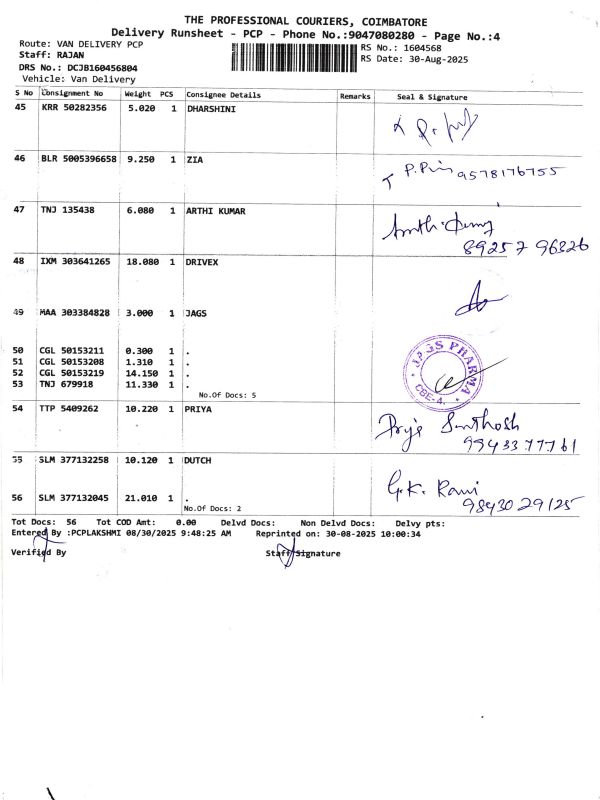 THE PROFESSIONAL COURIERS, COIMBATORE
Delivery Runsheet - PCP - Phone No.:9047080280 - Page No.:4
Route: VAN DELIVERY PCP
RS No.: 1604568
Staff: RAJAN
RS Date: 30-Aug-2025
DRS No.: DCJB160456804
Vehicle: Van Delivery
S No Consignment No Weight PCS Consignee Details Remarks Seal & Signature
45 KRR 50282356 5.020 1 DHARSHINI
46 BLR 5005396658 9.250 1 ZIA
9578176755
47 TNJ 135438 6.080 1 ARTHI KUMAR
89257 96326
48 IXM 303641265 18.080 1 DRIVEX
49 MAA 303384828 3.000 1 JAGS
50 CGL 50153211 0.300 1 .
51 CGL 50153208 1.310 1 .
52 CGL 50153219 14.150 1 .
53 TNJ 679918 11.330 1 .
No.Of Docs: 5
JAGS PHARMA
CBE-4.
54 TTP 5409262 10.220 1 PRIYA
Santhosh
9943377761
55 SLM 377132258 10.120 1 DUTCH
G.K. Rani
9843029125
56 SLM 377132045 21.010 1 .
No.Of Docs: 2
Tot Docs: 56 Tot COD Amt: 0.00 Delvd Docs: Non Delvd Docs: Delvy pts:
Entered By :PCPLAKSHMI 08/30/2025 9:48:25 AM Reprinted on: 30-08-2025 10:00:34
Verified By Staff Signature